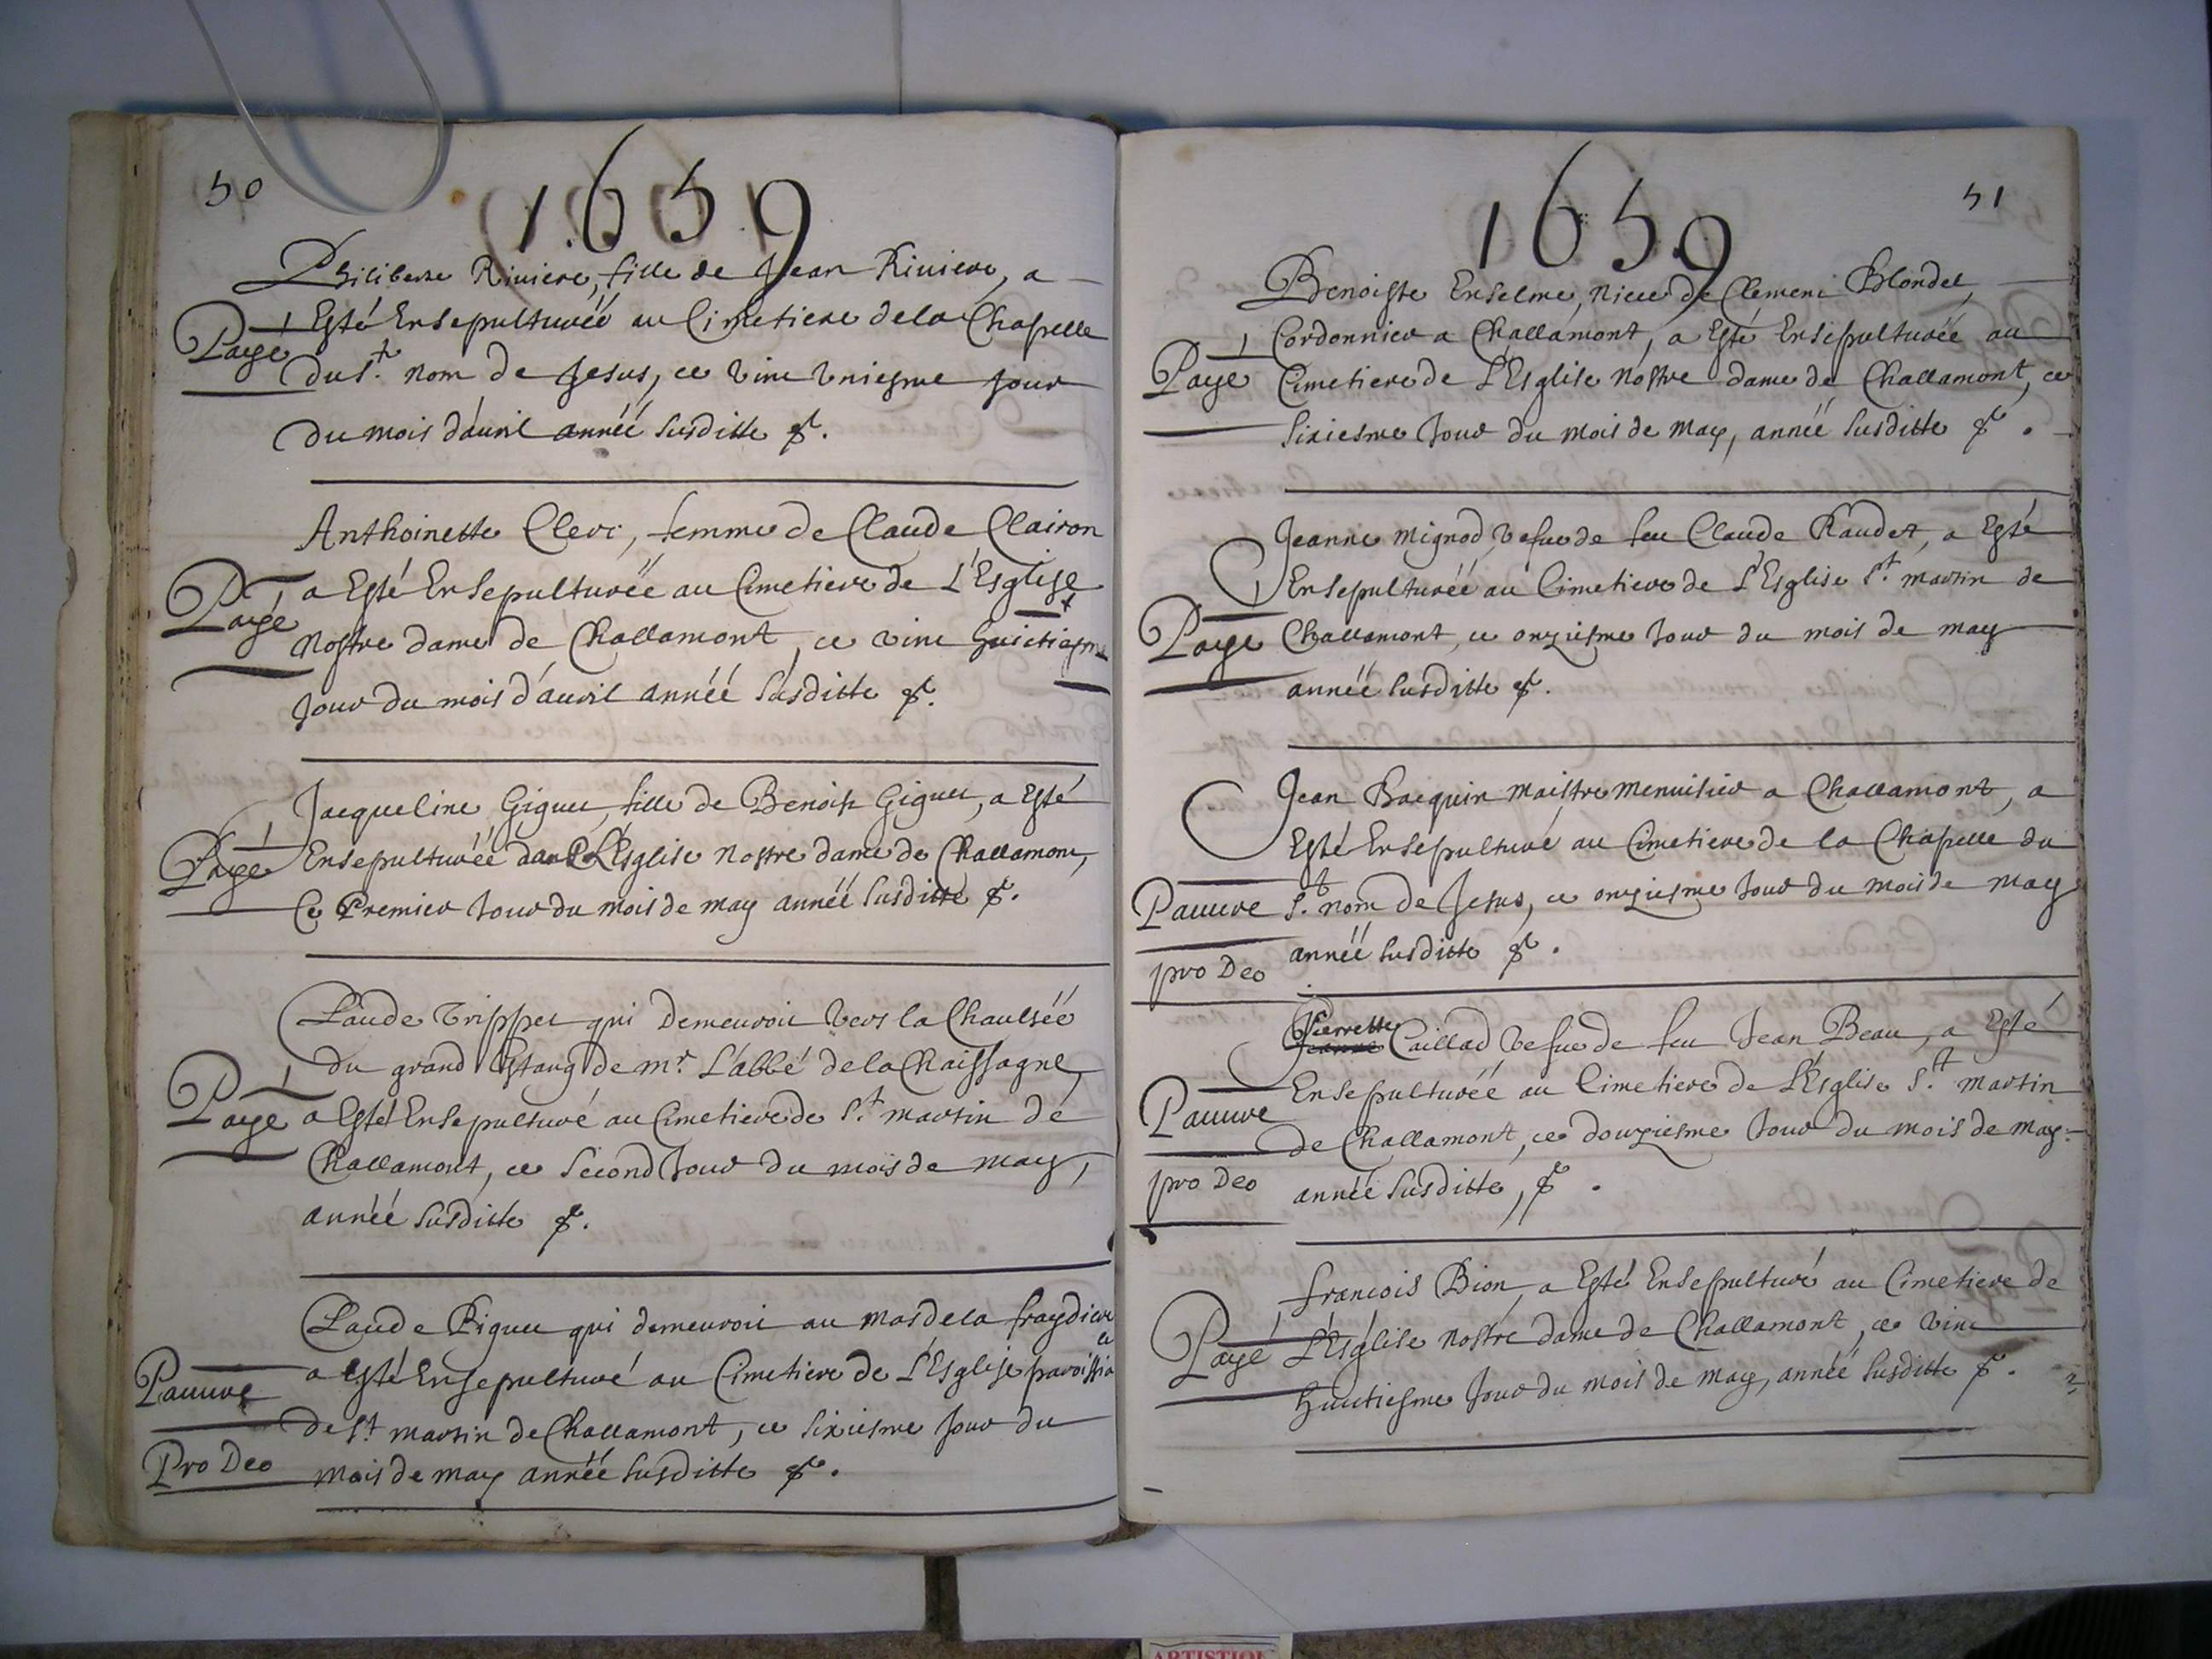 50
1659
Philiberte Riviere, fille de Jean Riviere, a
Esté Ensepulturéé au Cimetiere de la Chapelle
Payé
du St. nom de Jesus, ce vint vniesme Jour
du mois d'auril annéé susditte &c.
Anthoinette Clerc, femme de Claude Clairon
a Esté Ensepulturéé au Cimetiere de L'Esglise
Payé
Nostre dame de Challamont, ce vint huictiesme
Jour du mois d'auril annéé susditte &c.
Jacqueline Giguet, fille de Benoist Giguet, a Esté
Payé
Ensepulturéé dans L'Esglise Nostre dame de Challamont,
Ce Premier Jour du mois de may annéé susditte &c.
Claude Trippet qui demeuroit vers la Chaulséé
du grand Estang de mr. L'abbé de la Chaissagne,
Payé
a Esté Ensepulturé au Cimetiere de St. martin de
Challamont, ce second Jour du mois de may,
annéé susditte &c.
Claude Piguet qui demeuroit au mas de la fraydiere
a esté Ensepulturé au Cimetiere de L'Esglise paroissialle
Pauure
de St. martin de Challamont, ce sixiesme Jour du
Pro Deo
mois de may annéé susditte &c.
51
1659
Benoiste Enselme, niece de Clement Blondel,
Cordonnier a Challamont, a Esté Ensepulturéé au
Payé
Cimetiere de L'Esglise Nostre dame de Challamont, ce
sixiesme Jour du mois de may, annéé susditte &c.
Jeanne Mignod, vefue de feu Claude Chaudet, a Esté
Ensepulturéé au Cimetiere de L'Esglise St. martin de
Payé
Challamont, ce onziesme Jour du mois de may
annéé susditte &c.
Jean Bacquin maistre menuisier a Challamont, a
Esté Ensepulturé au Cimetiere de la Chapelle du
Pauure
St. nom de Jesus, ce onziesme Jour du mois de may
annéé susditte &c.
pro Deo
Pierrette
Jeanne Caillad vefue de feu Jean Beau, a Esté
Ensepulturéé au Cimetiere de L'Esglise St. martin
Pauure
de Challamont, ce douziesme Jour du mois de may
pro Deo
annéé susditte, &c.
francois Bion, a Esté Ensepulturé au Cimetiere de
Payé
L'Esglise Nostre dame de Challamont, ce vint
huictiesme Jour du mois de may, annéé susditte &c.
ARTISTIQUE